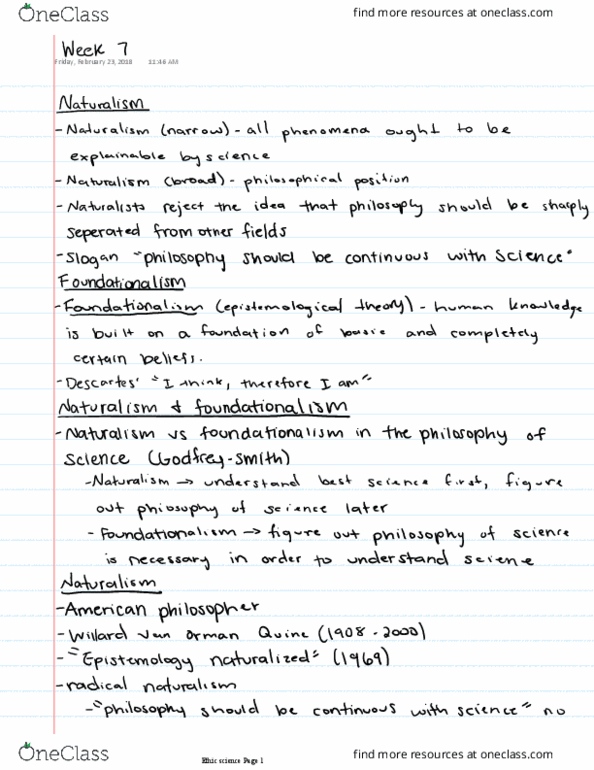 OneClass
find more resources at oneclass.com
Week 7
Friday, February 23, 2018 11:46 AM
Naturalism
- Naturalism (narrow) - all phenomena ought to be
explainable by science
- Naturalism (broad) - philosophical position
- Naturalists reject the idea that philosophy should be sharply
seperated from other fields
- Slogan "philosophy should be continuous with science"
Foundationalism
- Foundationalism (epistemological theory) - human knowledge
is built on a foundation of basic and completely
certain beliefs.
- Descartes' "I think, therefore I am"
Naturalism & foundationalism
- Naturalism vs foundationalism in the philosophy of
science (Godfrey-Smith)
- Naturalism → understand best science first, figure
out phiosophy of science later
- Foundationalism → figure out philosophy of science
is necessary in order to understand sciene
Naturalism
- American philosopher
- Willard Van Orman Quine (1908 - 2000)
- "Epistemology naturalized" (1969)
- radical naturalism
- "philosophy should be continuous with science" no
OneClass
Ethic science Page 1
find more resources at oneclass.com